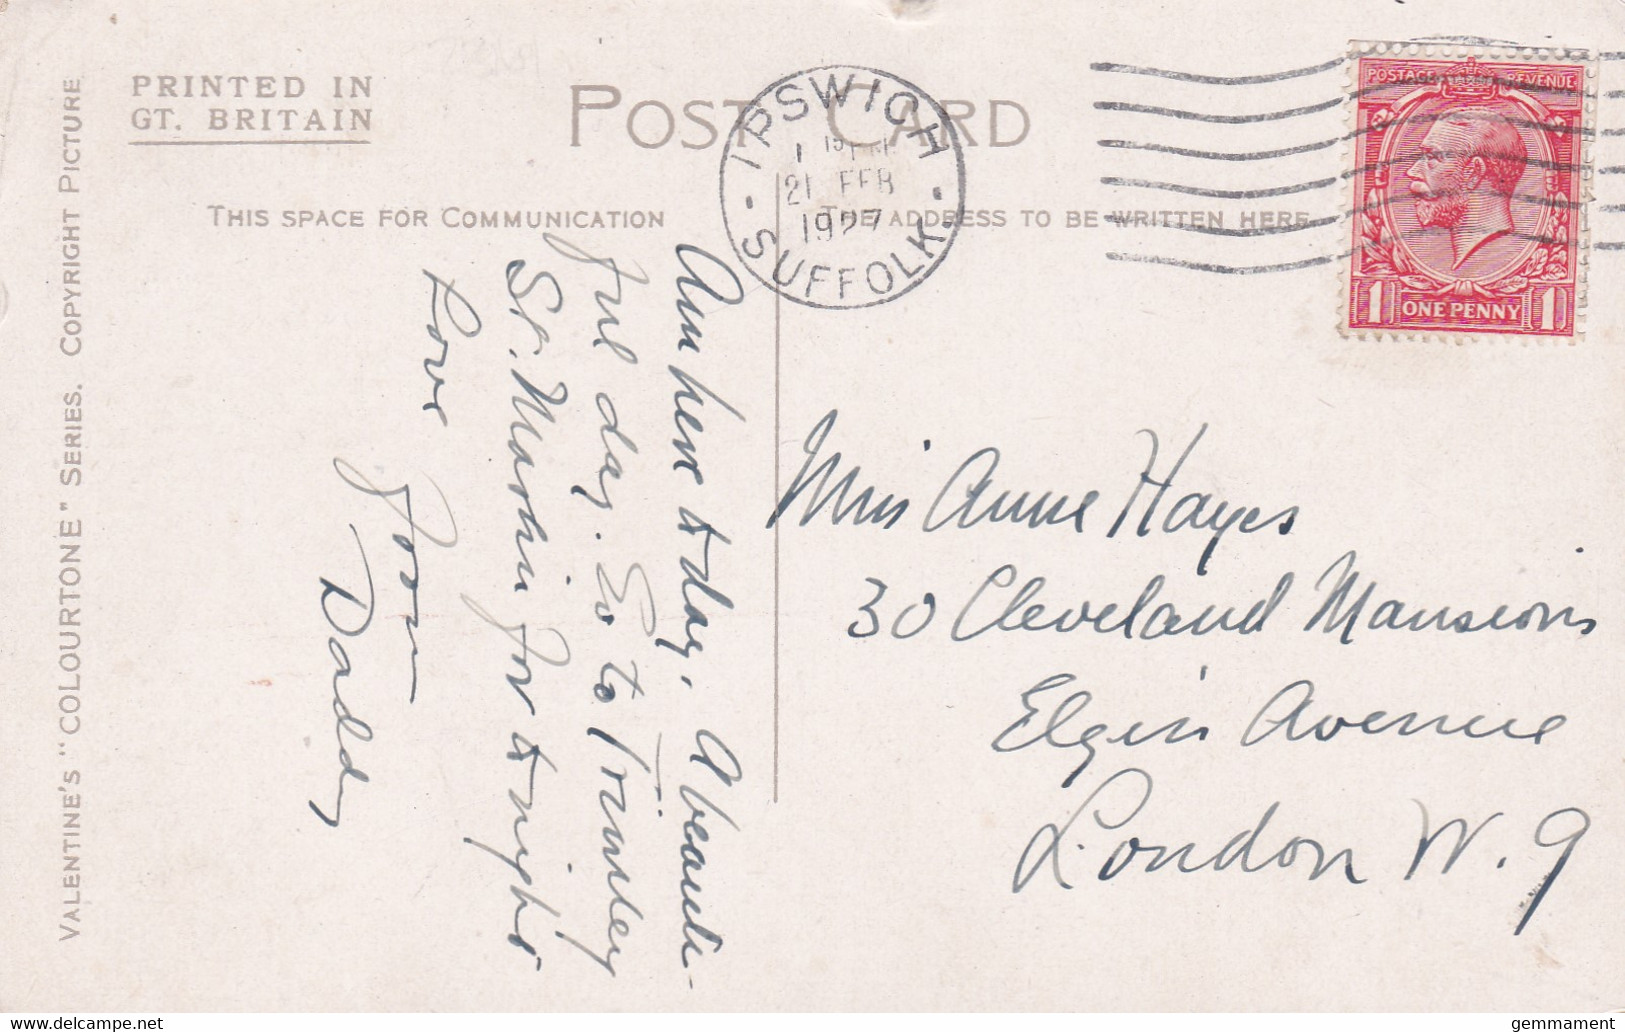 PRINTED IN
GT. BRITAIN
POST CARD
THIS SPACE FOR COMMUNICATION
THE ADDRESS TO BE WRITTEN HERE
IPSWICH
21 FEB
1927
SUFFOLK
POSTAGE REVENUE
1 ONE PENNY 1
VALENTINE'S "COLOURTONE" SERIES. COPYRIGHT PICTURE
Am here today. A beauti-
ful day. Go to Trimley
St. Martin for tonight
Love
from
Daddy
Miss Anne Hayes
30 Cleveland Mansions
Elgin Avenue
London W. 9
www.delcampe.net
gemmament